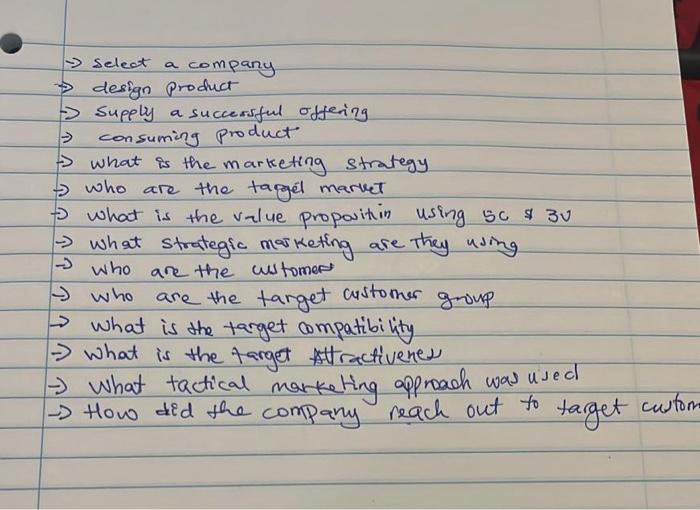 → select a company
→ design product
→ Supply a successful offering
→ consuming product
→ what is the marketing strategy
→ who are the target market
→ what is the value proposition using 5C & 3V
→ what strategic marketing are they using
→ who are the customers
→ who are the target customer group
→ what is the target compatibility
→ what is the target Attractivenes
→ what tactical marketing approach was used
→ How did the company reach out to target custom